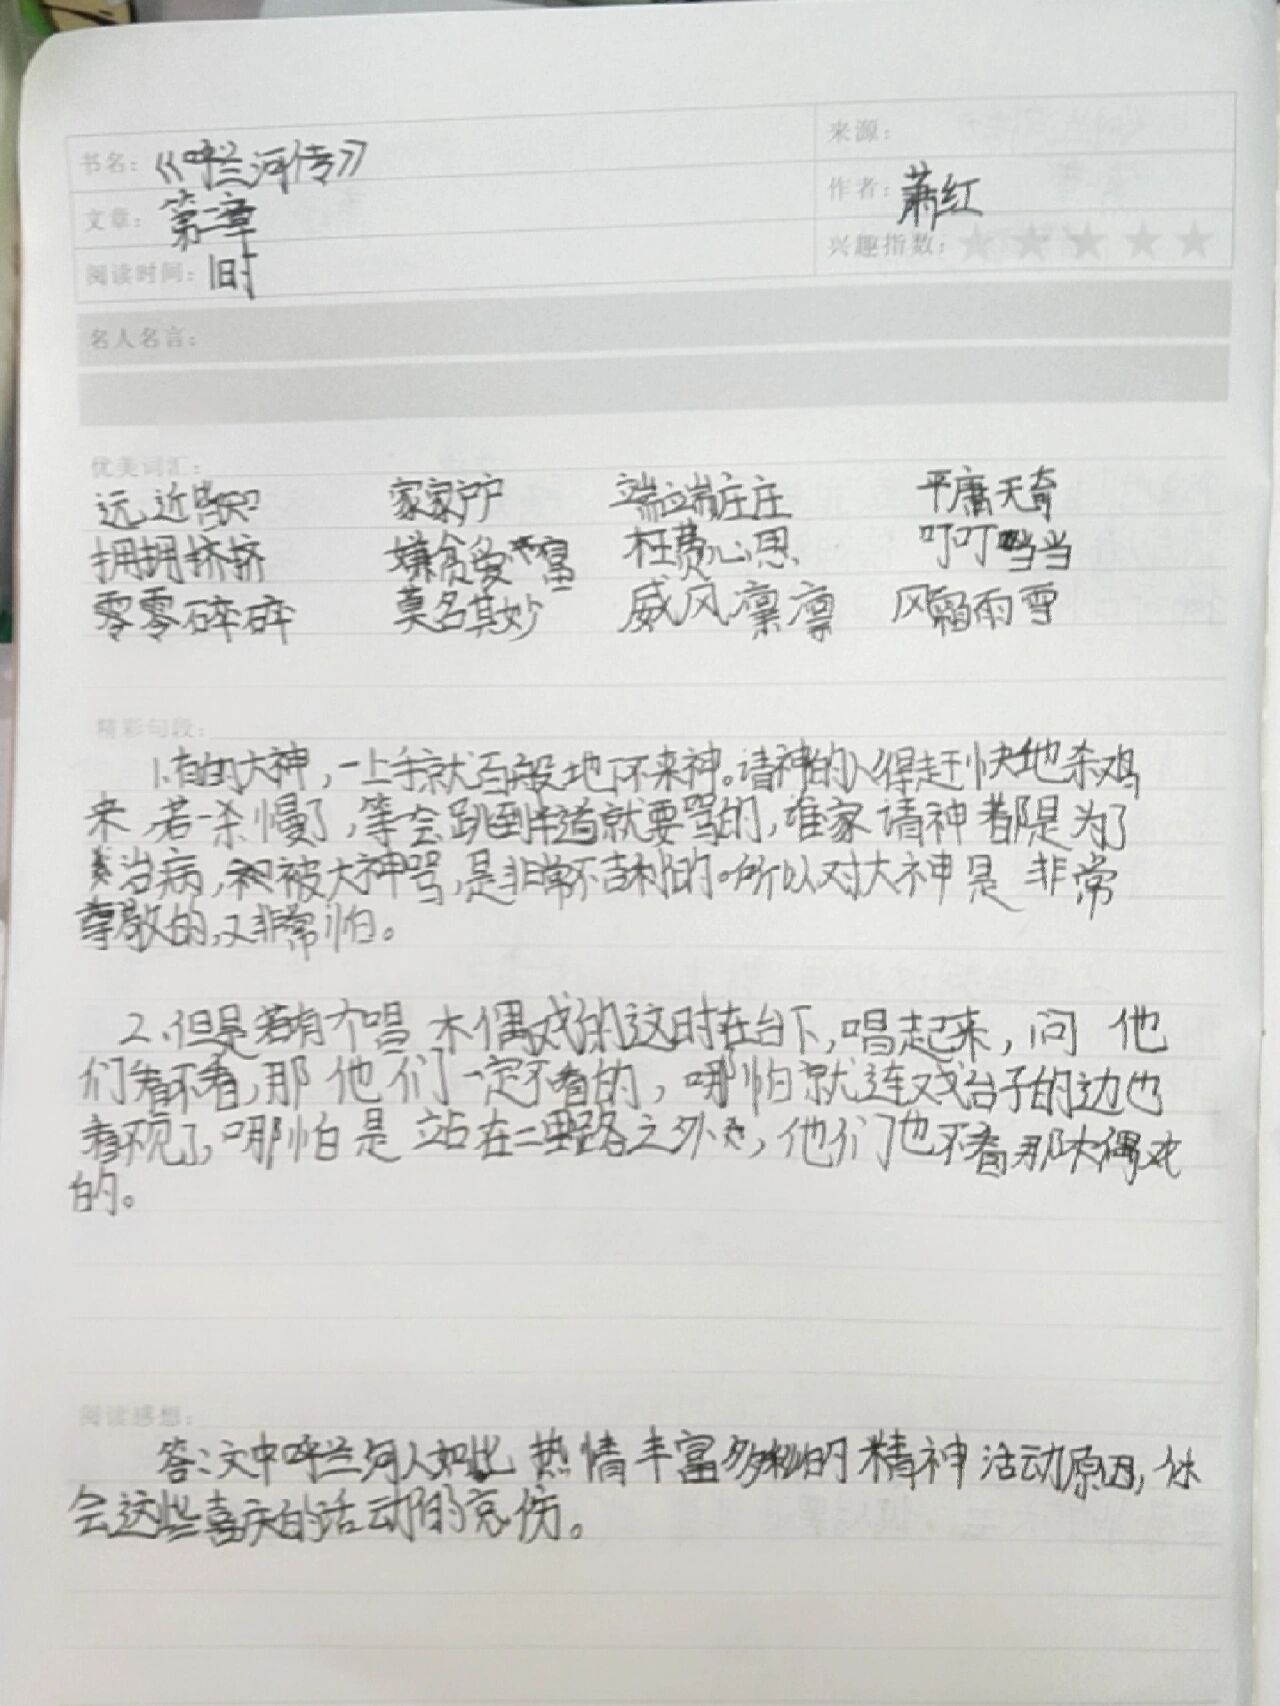 书名：《呼兰河传》 来源：
文章：第二章 作者：萧红
阅读时间：1时 兴趣指数：
名人名言：
优美词汇：
远近皆知 家家户户 端端庄庄 平庸无奇
拥拥挤挤 嫌贫爱富 枉费心思 叮叮当当
零零碎碎 莫名其妙 威风凛凛 风霜雨雪
精彩句段：
1.有的大神，一上手就百般地下不来神。请神的人得赶快地杀鸡
来，若一杀慢了，等会跳到半道就要骂的，谁家请神都是为了
治病，被大神骂，是非常不吉利的。所以对大神是非常
尊敬的，又非常怕。
2.但是若有个唱木偶戏的这时在台下，唱起来，问他
们看不看，那他们一定不看的，哪怕就连戏台子的边也
看不见了，哪怕是站在二里路之外，他们也不看那木偶戏
的。
阅读感想：
答：文中呼兰河人如此热情丰富多彩的精神活动原因，体
会这些喜庆的活动的悲伤。